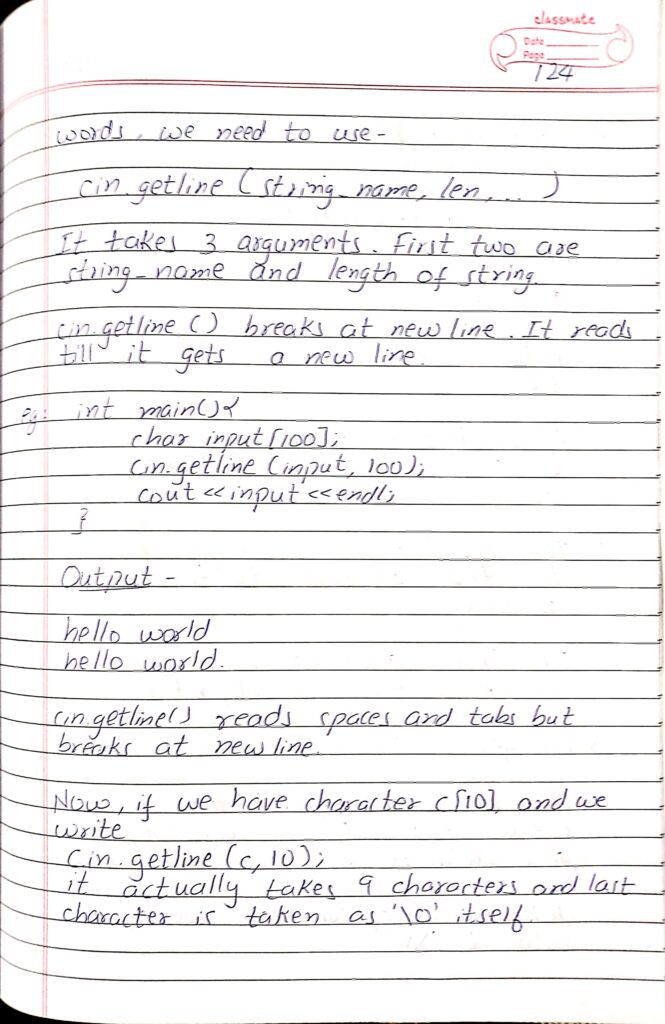 classmate
Date
Page
124
words, we need to use -
cin.getline (string_name, len, ... )
It takes 3 arguments. First two are
string_name and length of string.
cin.getline () breaks at new line. It reads
till it gets a new line.
eg: int main(){
char input[100];
cin.getline (input, 100);
cout <<input <<endl;
}
Output -
hello world
hello world.
cin.getline() reads spaces and tabs but
breaks at new line.
Now, if we have character c[10], and we
write
cin.getline (c, 10);
it actually takes 9 characters and last
character is taken as '\0' itself